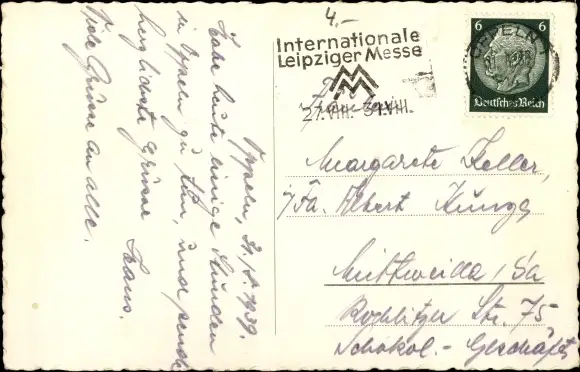 4.-
Internationale
Leipziger Messe
MM
27.VIII. - 31.VIII.
6 6
OPPELN
Deutsches Reich
Fräulein
Margarete Keller,
i/Fa. Albert Kunze
Mittweida i/Sa
Rochlitzer Str. 75
Schokol.-Geschäft
Oppeln, 21.8.1939.
Habe heute einige Stunden
in Oppeln zu tun, und sende
herzlichste Grüsse
Hans.
Viele Grüsse an alle.